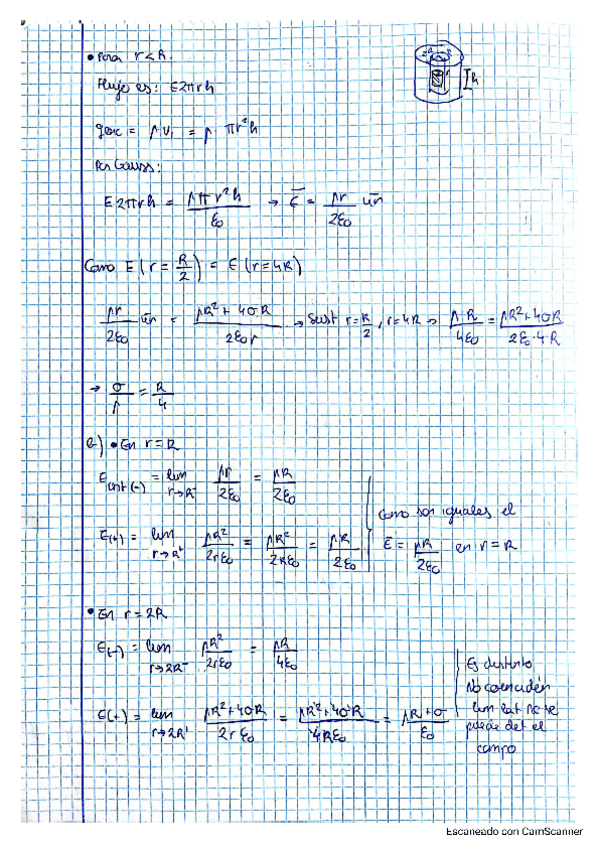 • Para r<R.
Flujo es: E2πrh
qenc = ρV, = ρ πr²h
Por Gauss:
E2πrh = ρπr²h/ε₀ → Ē = ρr/2ε₀ ūr
Como E(r=R/2) = E(r=4R)
ρr/2ε₀ ūr = ρR²+4σR/2ε₀r → Sust r=R/2, r=4R → ρR/4ε₀ = ρR²+4σR/2ε₀·4R
→ σ/ρ = R/4
• En r=R
E(-) = lim r→R⁻ ρr/2ε₀ = ρR/2ε₀
E(+) = lim r→R⁺ ρR²/2rε₀ = ρR²/2Rε₀ = ρR/2ε₀
Como son iguales el
E = ρR/2ε₀ en r=R
• En r=2R
E(-) = lim r→2R⁻ ρR²/2rε₀ = ρR/4ε₀
E(+) = lim r→2R⁺ ρR²+4σR/2rε₀ = ρR²+4σR/4Rε₀ = ρR+σ/ε₀
Es distinto
No coinciden
lim lat no se
puede det el
campo
h
Escaneado con CamScanner